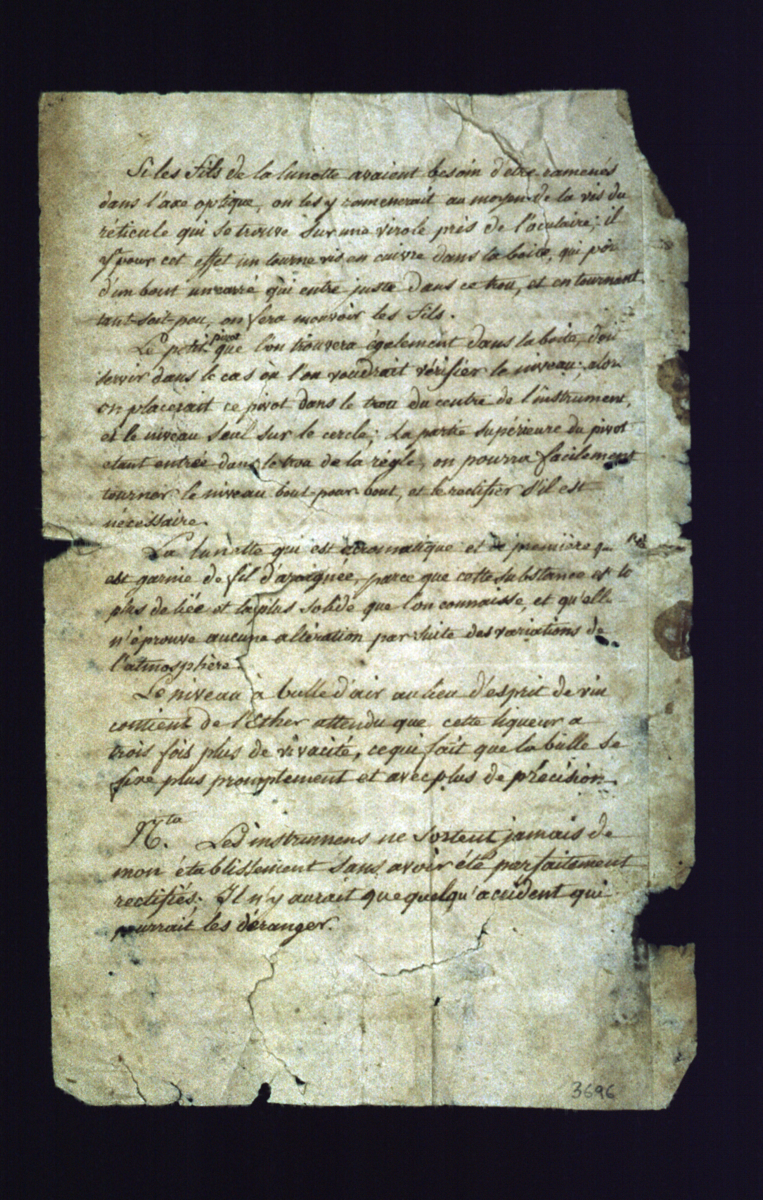 Si les fils de la lunette avaient besoin d'être ramenés
dans l'axe optique, on les y ramenerait au moyen de la vis du
réticule qui se trouve sur une virole près de l'oculaire; il
y pour cet effet un tourne vis en cuivre dans la boite, qui por
d'un bout un carré qui entre juste dans ce trou, et en tournant
tant soit peu, on fera mouvoir les fils.
Le petit pivot que l'on trouvera également dans la boite, doit
servir dans le cas où l'on voudrait vérifier le niveau; alor
on placerait ce pivot dans le trou du centre de l'instrument,
et le niveau seul sur le cercle; La partie supérieure du pivot
étant entrée dans le trou de la règle, on pourra facilement
tourner le niveau bout pour bout, et le rectifier s'il est
nécessaire.
La lunette qui est acromatique et de première qu
est garnie de fil d'araignée, parce que cette substance est la
plus deliée et la plus solide que l'on connaisse, et qu'elle
n'éprouve aucune altération par suite des variations de
l'atmosphère.
Le niveau à bulle d'air au lieu d'esprit de vin
contient de l'Ether attendu que cette liqueur a
trois fois plus de vivacité, ce qui fait que la bulle se
fixe plus promptement et avec plus de précision.
N.ta Les instrumens ne sortent jamais de
mon établissement sans avoir été parfaitement
rectifiés. Il n'y aurait que quelqu'accident qui
pourrait les déranger.
3696